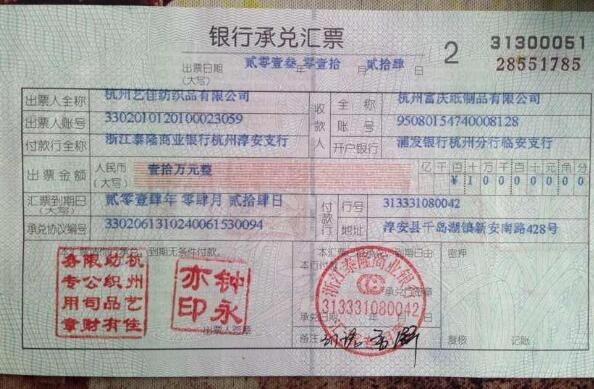 银行承兑汇票
2
31300051
28551785
出票日期
(大写)
贰零壹叁
零壹拾
贰拾肆
出票人全称
杭州艺佳纺织品有限公司
收款人
全称
杭州富庆纸制品有限公司
出票人账号
3302010120100023059
账号
95080154740008128
付款行全称
浙江泰隆商业银行杭州淳安支行
开户银行
浦发银行杭州分行临安支行
出票金额
人民币
(大写)
壹拾万元整
亿千百十万千百十元角分
¥10000000
汇票到期日
(大写)
贰零壹肆年 零肆月 贰拾肆日
付款行
行号
313331080042
承兑协议编号
3302061310240061530094
地址
淳安县千岛湖镇新安南路428号
到期无条件付款。
密押
杭州艺佳
纺织品有限公司
财务专用章
钟永
亦印
出票人签章
浙江泰隆商业银
313331080042
承兑行签章
承兑日期 年 月 日
备注
复核
记账